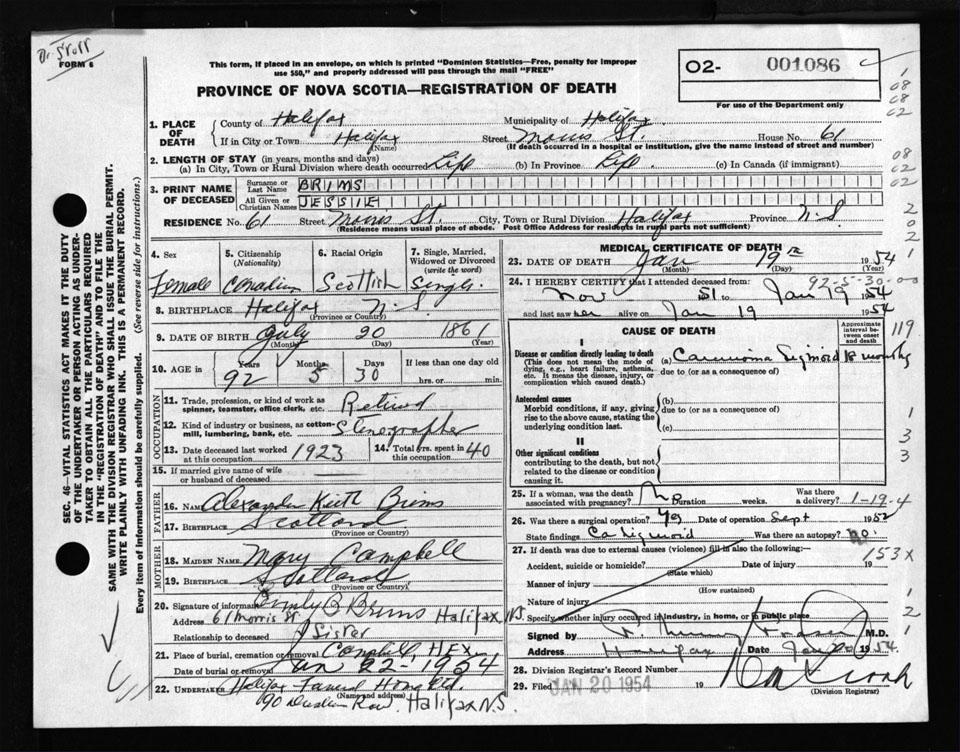 Dr. Stoll
FORM 6
This form, if placed in an envelope, on which is printed "Dominion Statistics—Free, penalty for improper
use $50," and properly addressed will pass through the mail "FREE"
O2- 001086
For use of the Department only
PROVINCE OF NOVA SCOTIA—REGISTRATION OF DEATH
1. PLACE OF DEATH
County of Halifax Municipality of Halifax
If in City or Town Halifax Street Morris St. House No. 61
(Name) (If death occurred in a hospital or institution, give the name instead of street and number)
2. LENGTH OF STAY (in years, months and days)
(a) In City, Town or Rural Division where death occurred Life (b) In Province Life (c) In Canada (if immigrant)
3. PRINT NAME OF DECEASED
Surname or Last Name BRIMS
All Given or Christian Names JESSIE
RESIDENCE No. 61 Street Morris St. City, Town or Rural Division Halifax Province N.S
(Residence means usual place of abode. Post Office Address for residents in rural parts not sufficient)
4. Sex Female
5. Citizenship (Nationality) Canadian
6. Racial Origin Scottish
7. Single, Married, Widowed or Divorced (write the word) Single
8. BIRTHPLACE Halifax N.S.
(Province or Country)
9. DATE OF BIRTH July 20 1861
(Month) (Day) (Year)
10. AGE in Years Months Days If less than one day old
92 5 30 hrs. or min.
OCCUPATION
11. Trade, profession, or kind of work as spinner, teamster, office clerk, etc. Retired
12. Kind of industry or business, as cotton-mill, lumbering, bank, etc. Stenographer
13. Date deceased last worked at this occupation 1923
14. Total yrs. spent in this occupation 40
15. If married give name of wife or husband of deceased
FATHER
16. Name Alexander Keith Brims
17. Birthplace Scotland
(Province or Country)
MOTHER
18. Maiden Name Mary Campbell
19. Birthplace Scotland
(Province or Country)
20. Signature of informant Emily B Brims
Address 61 Morris St Halifax, N.S.
Relationship to deceased Sister
21. Place of burial, cremation or removal Camphill, HFX
Date of burial or removal Jan 22-1954
22. Undertaker Halifax Funeral Home Ltd.
(Name and address)
90 Row, Halifax N.S.
MEDICAL CERTIFICATE OF DEATH
23. DATE OF DEATH Jan 19th 1954
(Month) (Day) (Year)
92-5-30-00
24. I HEREBY CERTIFY that I attended deceased from:
Nov 51 to Jan 19 1954
and last saw her alive on Jan 19 1954
CAUSE OF DEATH
Approximate interval between onset and death
I
Disease or condition directly leading to death
(This does not mean the mode of dying, e.g., heart failure, asthenia, etc. It means the disease, injury, or complication which caused death.)
(a) Carcinoma Sigmoid 18 months
due to (or as a consequence of)
Antecedent causes
Morbid conditions, if any, giving rise to the above cause, stating the underlying condition last.
(b)
due to (or as a consequence of)
(c)
II
Other significant conditions
contributing to the death, but not related to the disease or condition causing it.
25. If a woman, was the death associated with pregnancy? No Duration weeks. Was there a delivery? 1-19-4
26. Was there a surgical operation? Yes Date of operation Sept 1952
State findings Ca Sigmoid Was there an autopsy? no.
27. If death was due to external causes (violence) fill in also the following:—
153X
Accident, suicide or homicide? Date of injury 19
(State which)
Manner of injury
(How sustained)
Nature of injury
Specify whether injury occurred in industry, in home, or in public place
Signed by M.D.
Address Halifax Date Jan 20 1954.
28. Division Registrar's Record Number
29. Filed JAN 20 1954 19
(Division Registrar)
SEC. 46—VITAL STATISTICS ACT MAKES IT THE DUTY
OF THE UNDERTAKER OR PERSON ACTING AS UNDER-
TAKER TO OBTAIN ALL THE PARTICULARS REQUIRED
IN THE "REGISTRATION OF DEATH" AND TO FILE THE
SAME WITH THE DIVISION REGISTRAR WHO SHALL ISSUE THE BURIAL PERMIT.
WRITE PLAINLY WITH UNFADING INK. THIS IS A PERMANENT RECORD.
Every item of information should be carefully supplied. (See reverse side for instructions.)
1
08
08
02
08
02
02
2
0
2
119
1
3
3
1
2
1